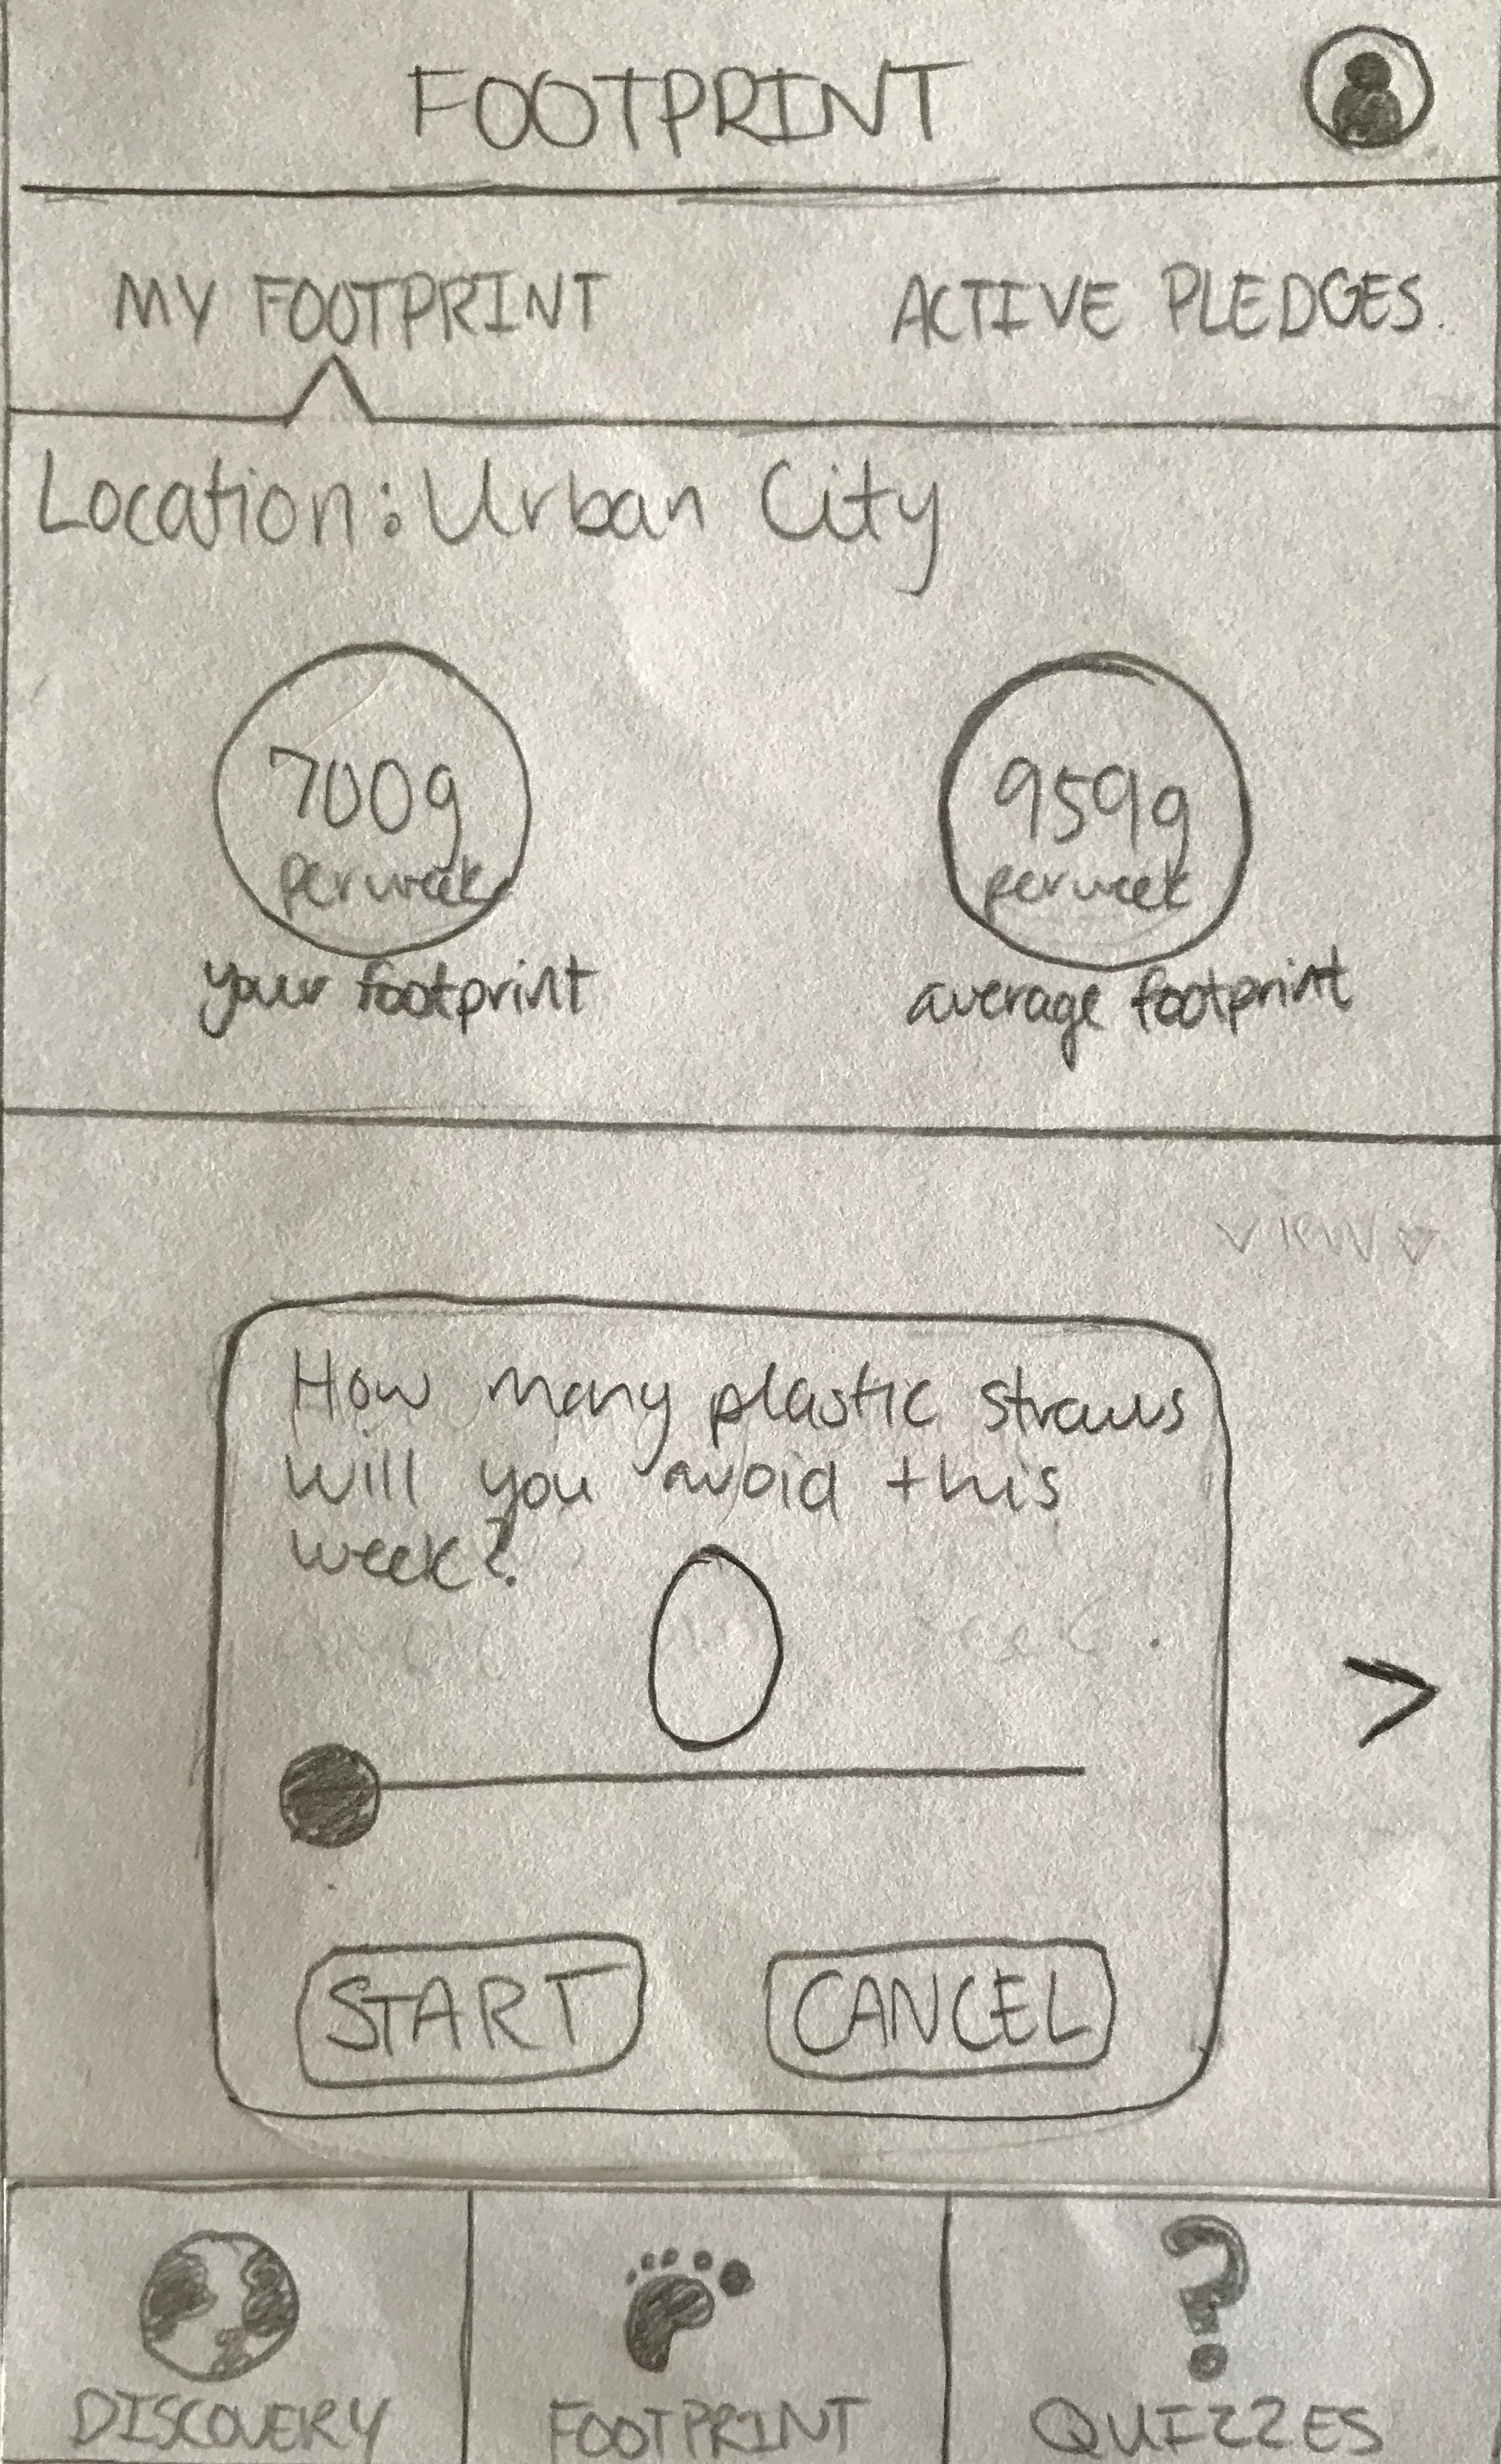 FOOTPRINT
MY FOOTPRINT ACTIVE PLEDGES
Location: Urban City
700g 959g
per week per week
your footprint average footprint
VIEW
How many plastic straws
will you avoid this
week?
0
>
START CANCEL
?
DISCOVERY FOOTPRINT QUIZZES